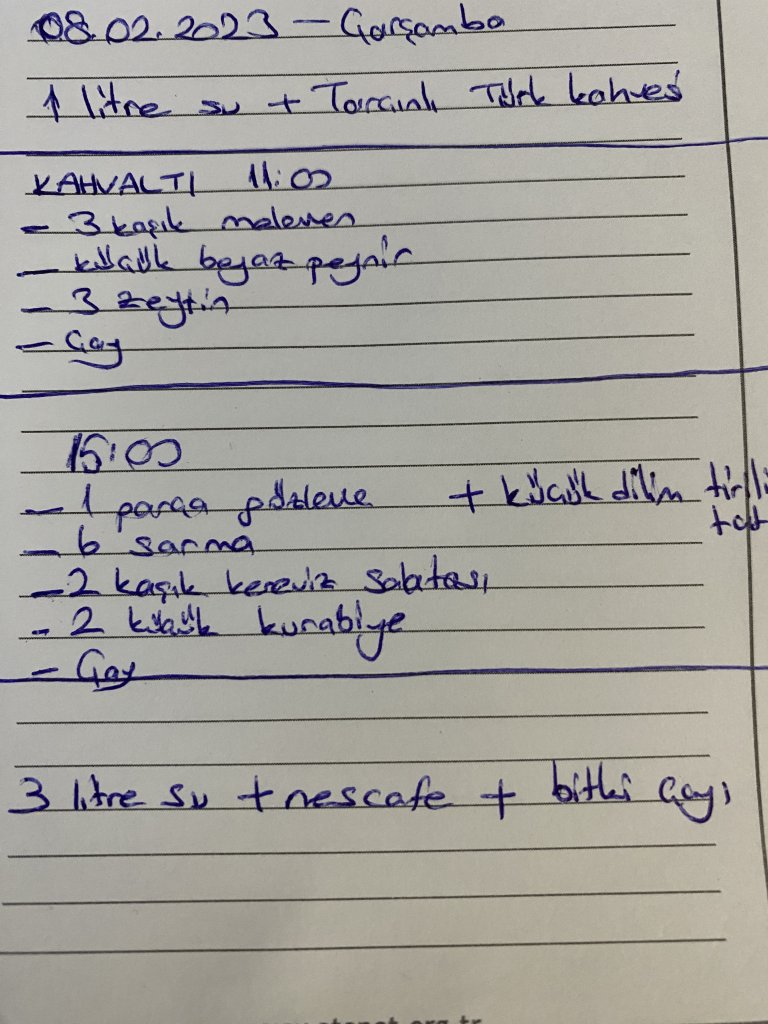 08.02.2023 - Çarşamba
1 litre su + Tarçınlı Türk kahvesi
KAHVALTI 11:00
- 3 kaşık melemen
- küçük beyaz peynir
- 3 zeytin
- Çay
15:00
- 1 parça gözleme + küçük dilim
- 6 sarma
- 2 kaşık kereviz salatası
- 2 küçük kurabiye
- Çay
3 litre su + nescafe + bitki çayı